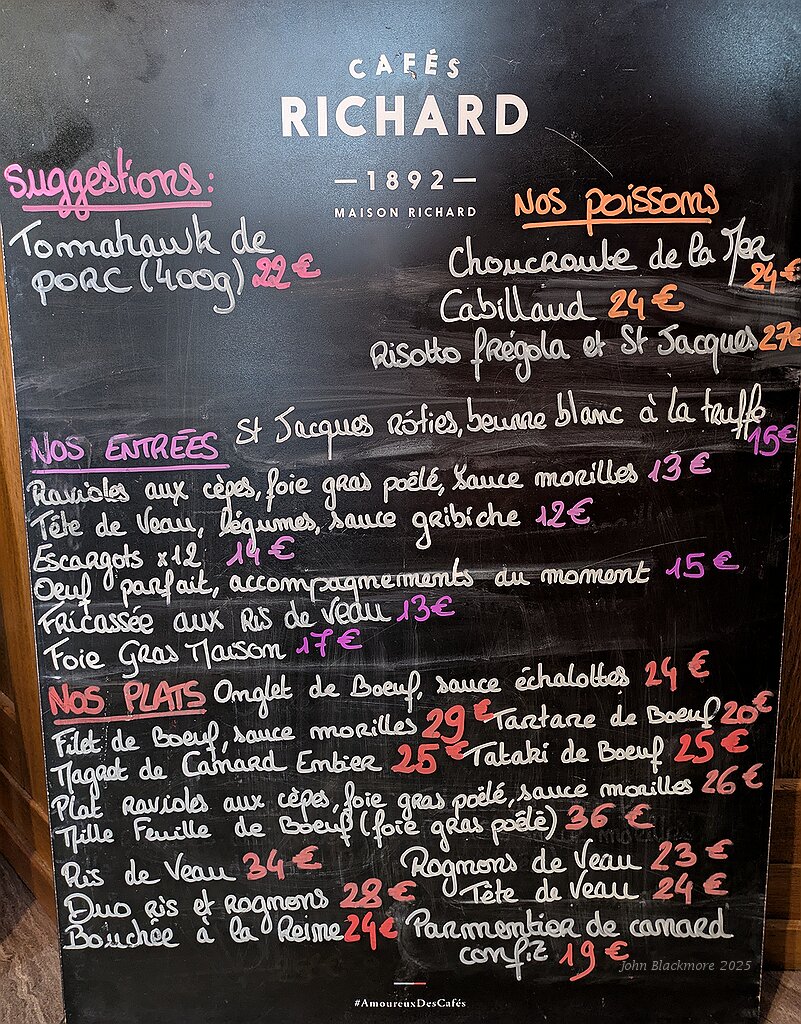 CAFÉS
RICHARD
—1892—
MAISON RICHARD
Suggestions:
Tomahawk de
PORC (400g) 22€
Nos poissons
Choucroute de la Mer
24€
Cabillaud 24€
Risotto frégola et St Jacques 27€
NOS ENTRÉES St Jacques rôties, beurre blanc à la truffe
15€
Ravioles aux cèpes, foie gras poêlé, sauce morilles 13€
Tête de Veau, légumes, sauce gribiche 12€
Escargots x12 14€
Oeuf parfait, accompagnements du moment 15€
Fricassée aux Ris de veau 13€
Foie Gras Maison 17€
NOS PLATS Onglet de Boeuf, sauce échalottes 24€
Filet de Boeuf, sauce morilles 29€ Tartare de Boeuf 20€
Magret de Canard Entier 25€ Tataki de Boeuf 25€
Plat Ravioles aux cèpes, foie gras poêlé, sauce morilles 26€
Mille Feuille de Boeuf (foie gras poêlé) 36€
Ris de Veau 34€ Rognons de Veau 23€
Duo ris et rognons 28€ Tête de Veau 24€
Bouchée à la Reine 24€ Parmentier de canard
confit 19€
John Blackmore 2025
#AmoureuxDesCafés